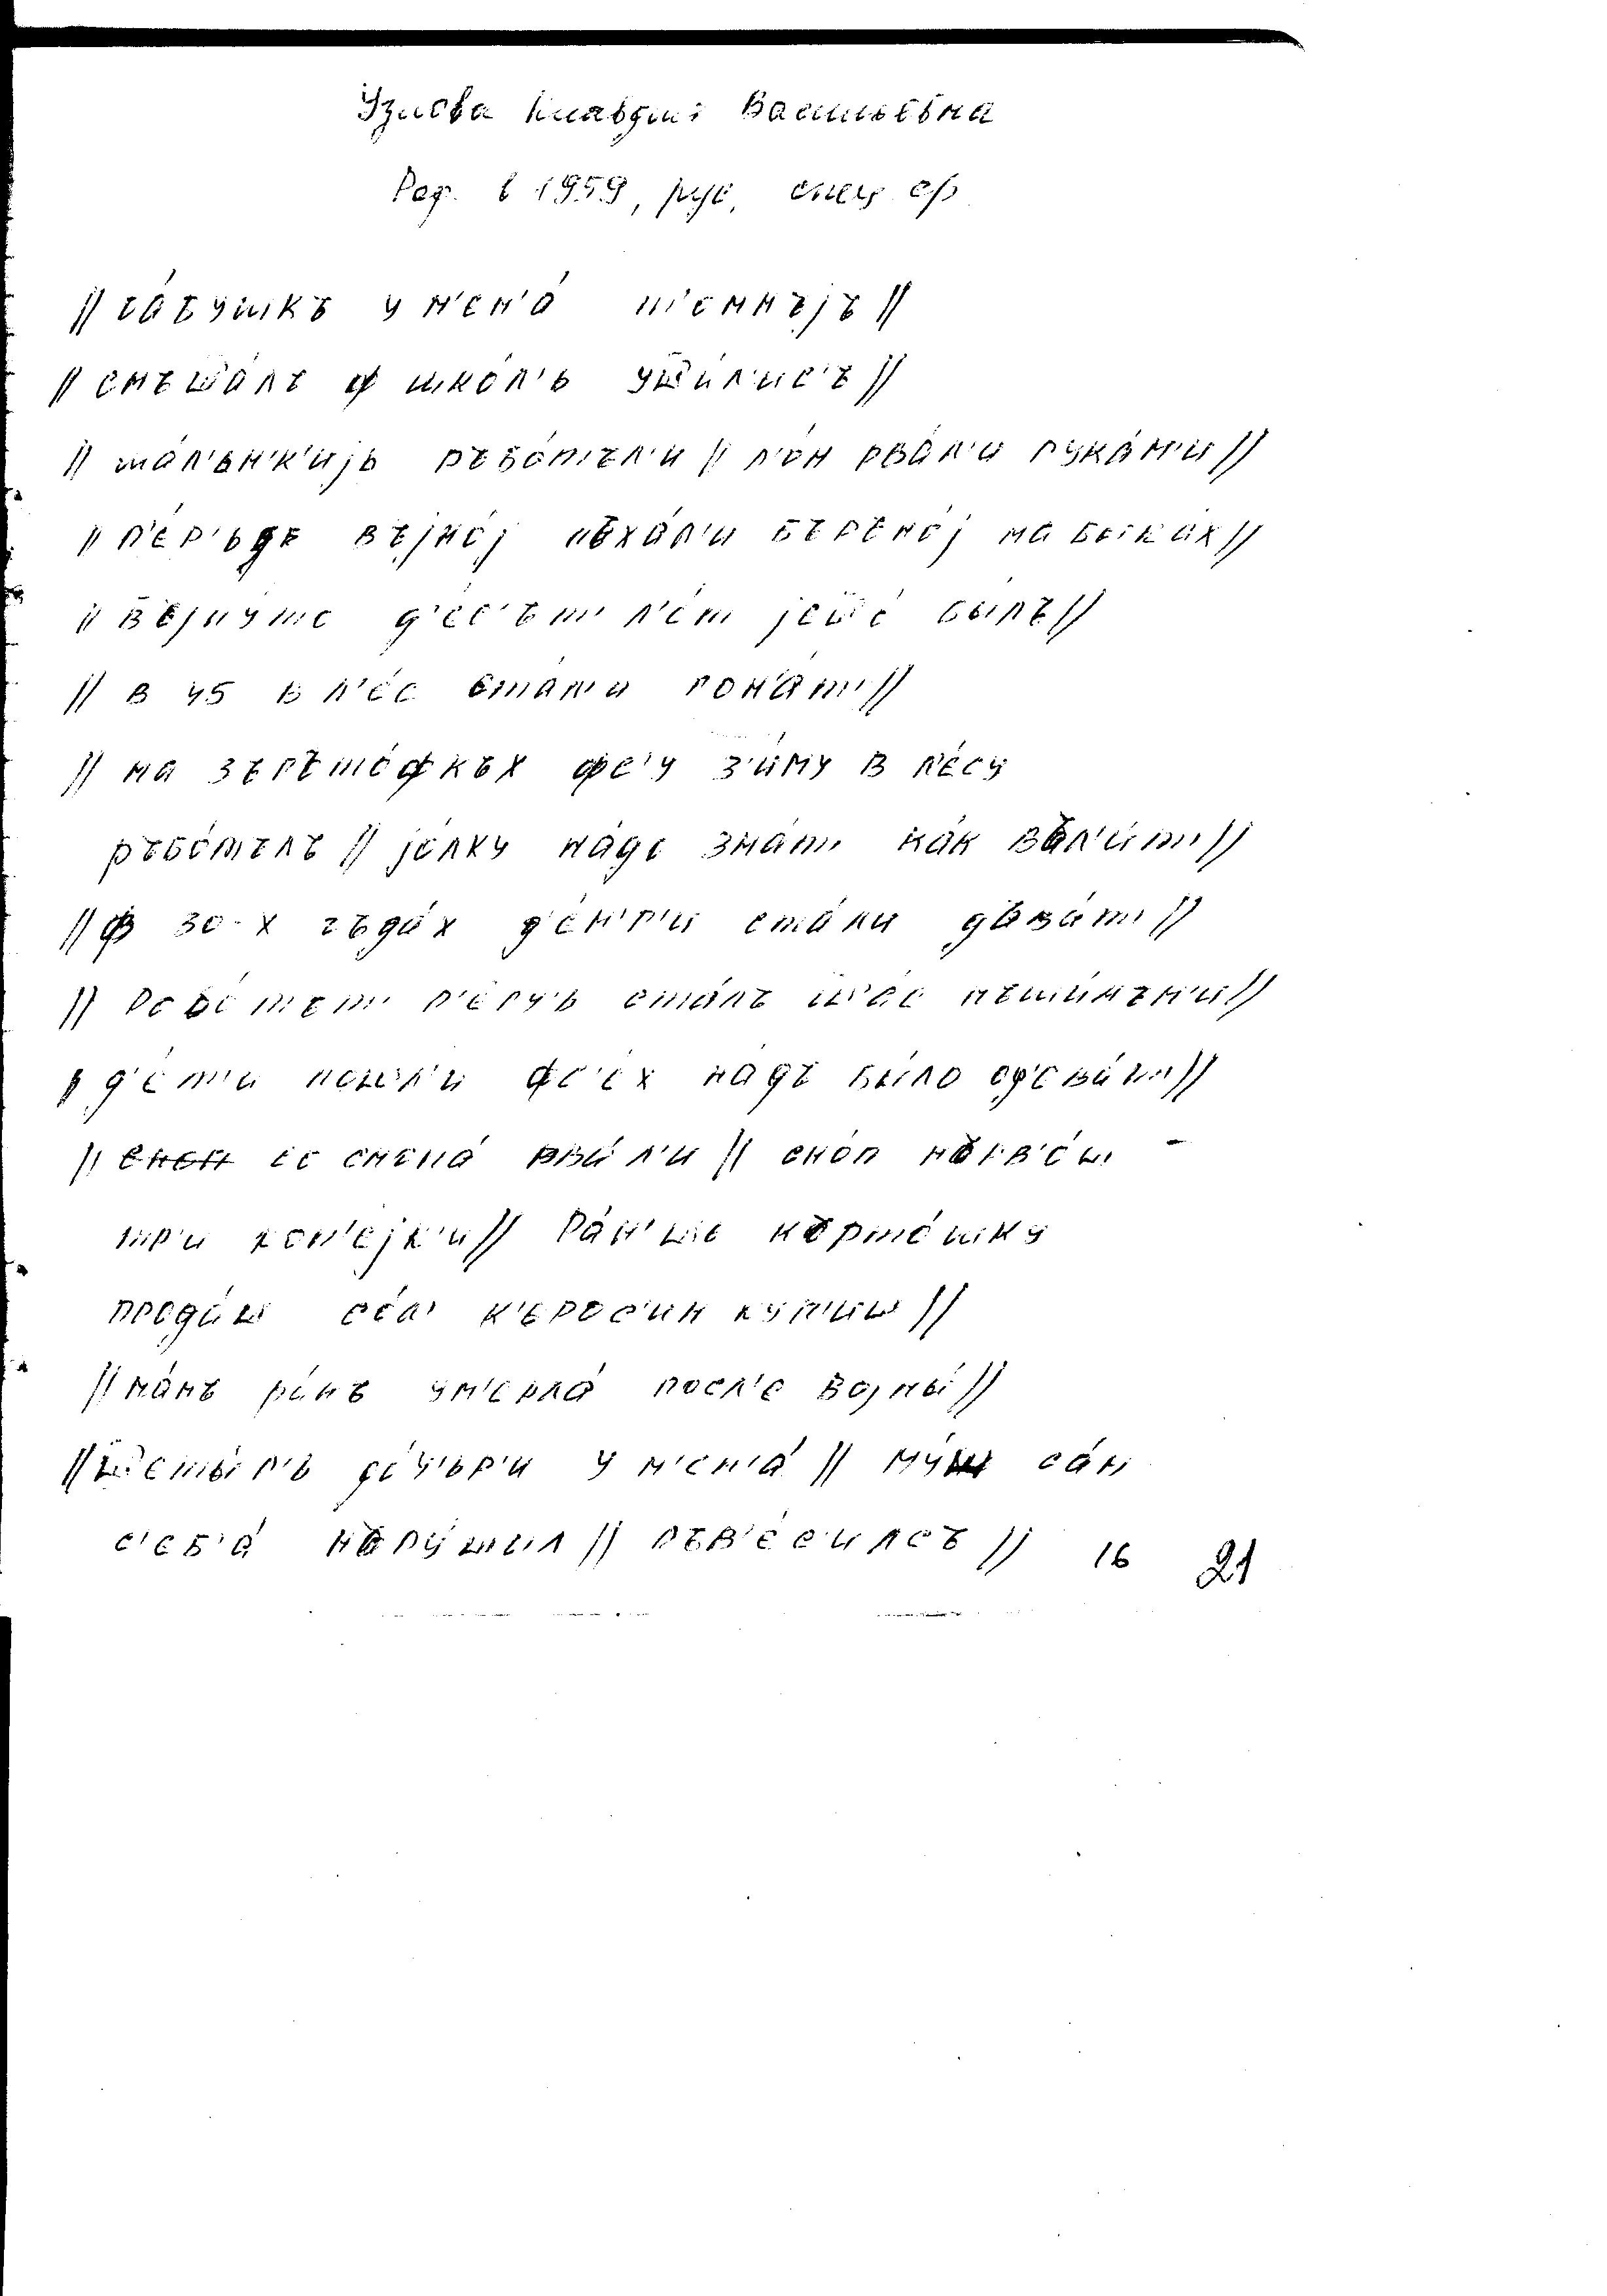 Узлова Клавдия Васильевна
Род. в 1959, рус, спец. ср.
// у м'ен'а́ т'емнъjъ //
// снъш̅а́лъ ф шко́л'ь уш̅и́л'ис'ъ //
// ма́л'ьн'к'иjь ръбо́тъл'и // л'о́н рва́л'и рука́м'и //
// п'е́р'ьдъ въjно́j пъха́л'и бъръно́j на быка́х //
// д'е́с'ьт' л'е́т jеш̅'о́ бы́лъ //
// в 45 в л'е́с ста́л'и гон'а́т' //
// на зъгъто́фкъх фс'у з'и́му в л'есу́
ръбо́тълъ // jо́лку на́до зна́т' ка́к въл'и́т' //
// ф 30-х гъда́х д'е́н'г'и ста́ли дъва́т' //
// ста́лъ ш̅'а́с мъши́нъм'и //
// д'е́т'и пошл'и́ фс'е́х на́дъ бы́ло од'ева́т' //
// снопа́ рва́л'и // сно́п нърв'о́ш -
тр'и коп'е́jк'и // Ра́н'ше къръто́шку
прода́ш со́л' к'ерос'ин ку́п'иш //
// ма́мъ ра́нъ ум'ерла́ посл'е воjны́ //
// ш̅еты́р'ь до́ч'ьр'и у м'ен'а́ // му́ш са́м
с'еб'а́ нъру́шил // пъв'е́силсъ // 16 21